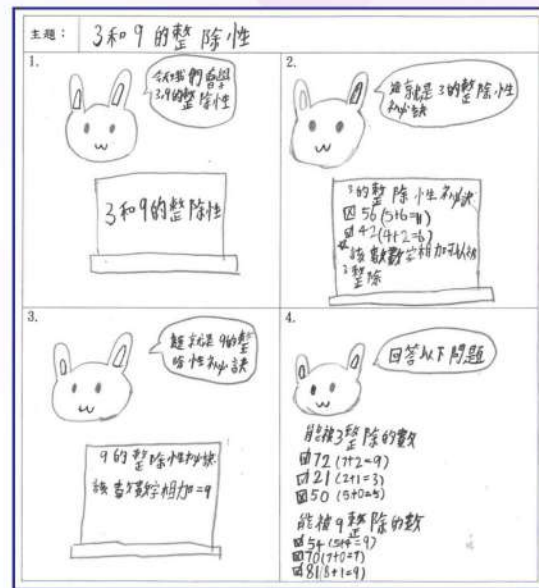 主題： 3和9的整除性
1.
今天我們會學
3,9的整
除性
3和9的整除性
2.
這就是3的整除性
秘訣
3的整除性秘訣
☒ 56 (5+6=11)
☑ 42 (4+2=6)
該數數字相加可以被
3整除
3.
這就是9的整
除性秘訣
9的整除性秘訣
該數數字相加=9
4.
回答以下問題
能被3整除的數
☑ 72 (7+2=9)
☑ 21 (2+1=3)
☒ 50 (5+0=5)
能被9整除的數
☑ 54 (5+4=9)
☒ 70 (7+0=7)
☑ 81 (8+1=9)